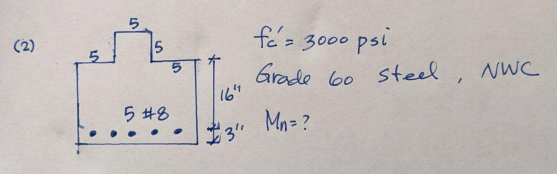 (2)
5
5
5
5
fc' = 3000 psi
Grade 60 Steel, NWC
16"
5 #8
3"
Mn = ?